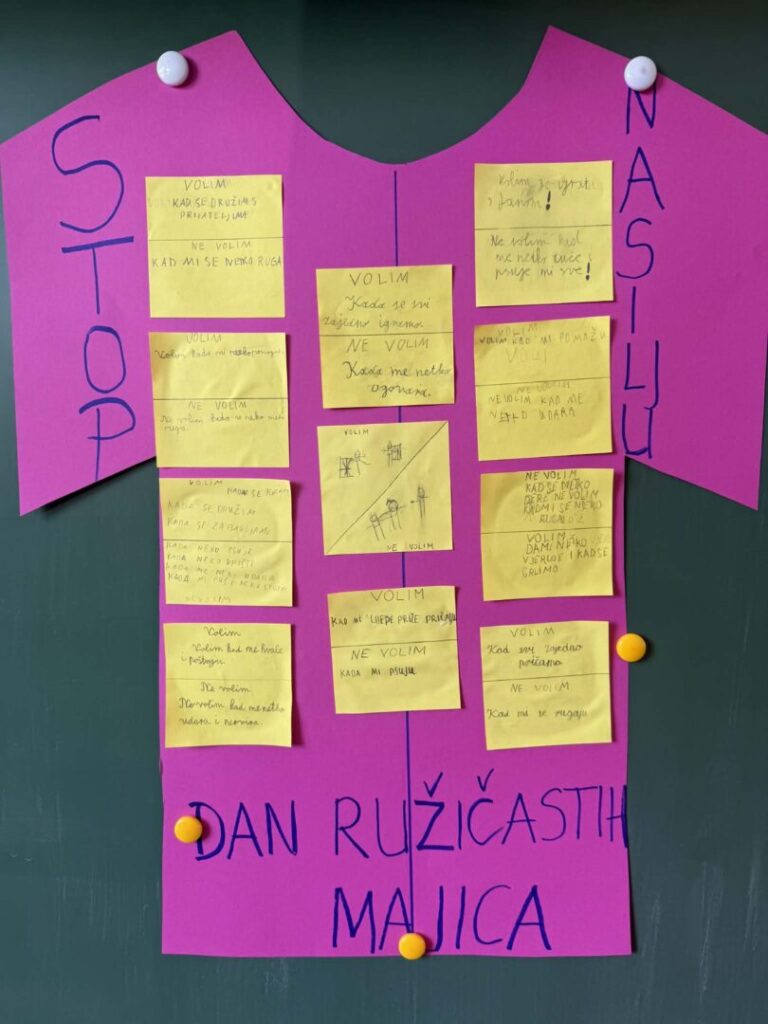 STOP
NASILJU
VOLIM
KAD SE DRUŽIM S
PRIJATELJIMA
NE VOLIM
KAD MI SE NETKO RUGA
VOLIM
Volim kada mi netko pomogne.
NE VOLIM
Ne volim kada se neko meni
ruga.
VOLIM
KADA SE IGRAM
KADA SE DRUŽIM
KADA SE ZABAVLJAM
KADA NEKO PSUJE
KADA NEKO
KADA ME NEKO UDARA
KADA MI
NE VOLIM
Volim
Volim kad me hvale
i poštuju.
Ne volim
Ne volim kad me netko
udara i nervira.
VOLIM
Kada se svi
zajedno igramo.
NE VOLIM
Kada me netko
ogovara.
VOLIM
NE VOLIM
VOLIM
KAD ME LIJEPE PRIČE PRIČAJU
NE VOLIM
KADA MI PSUJU
Volim
s !
Ne volim kad
me netko tuče i
psuje mi sve!
VOLIM
VOLIM KAD MI POMAŽU
VOLI
NE VOLIM
NE VOLIM KAD ME
NETKO UDARA
NE VOLIM
KAD SE NETKO
DERE NE VOLIM
KAD MI SE NEKO
RUGA
VOLIM
DA MI NETKO
VJERUJE I KAD SE
GRLIMO
VOLIM
Kad svi zajedno
pričamo
NE VOLIM
Kad mi se rugaju
DAN RUŽIČASTIH
MAJICA